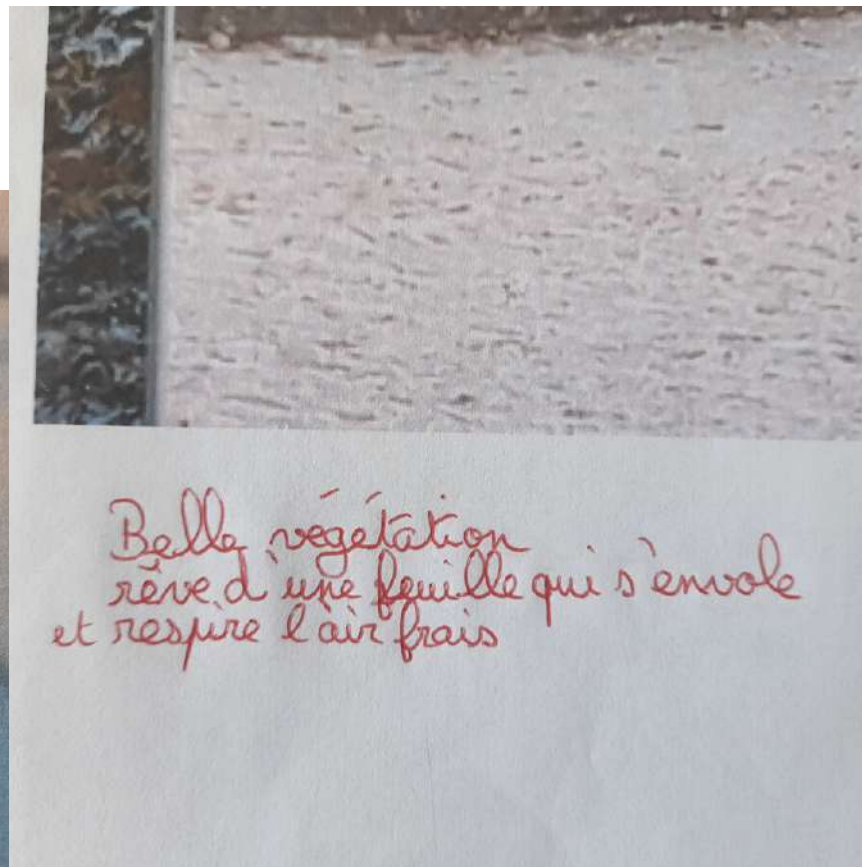 Belle végétation
rêve d'une feuille qui s'envole
et respire l'air frais